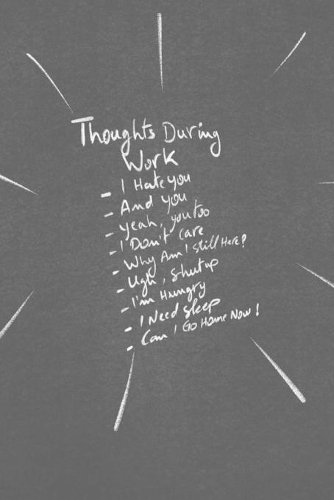 Thoughts During
Work
- I Hate you
- And you
- Yeah, you too
- I Don't care
- Why Am I Still Here?
- Ugh, Shut up
- I'm Hungry
- I Need Sleep
- Can I Go Home Now!